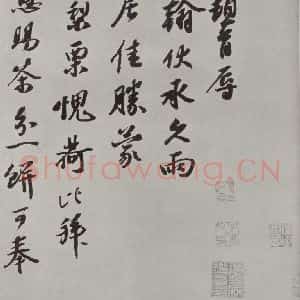 首辱
翰伏承久雨
居佳勝蒙
梨栗愧荷比拜
賜茶分一餅可奉
Shufawang.CN